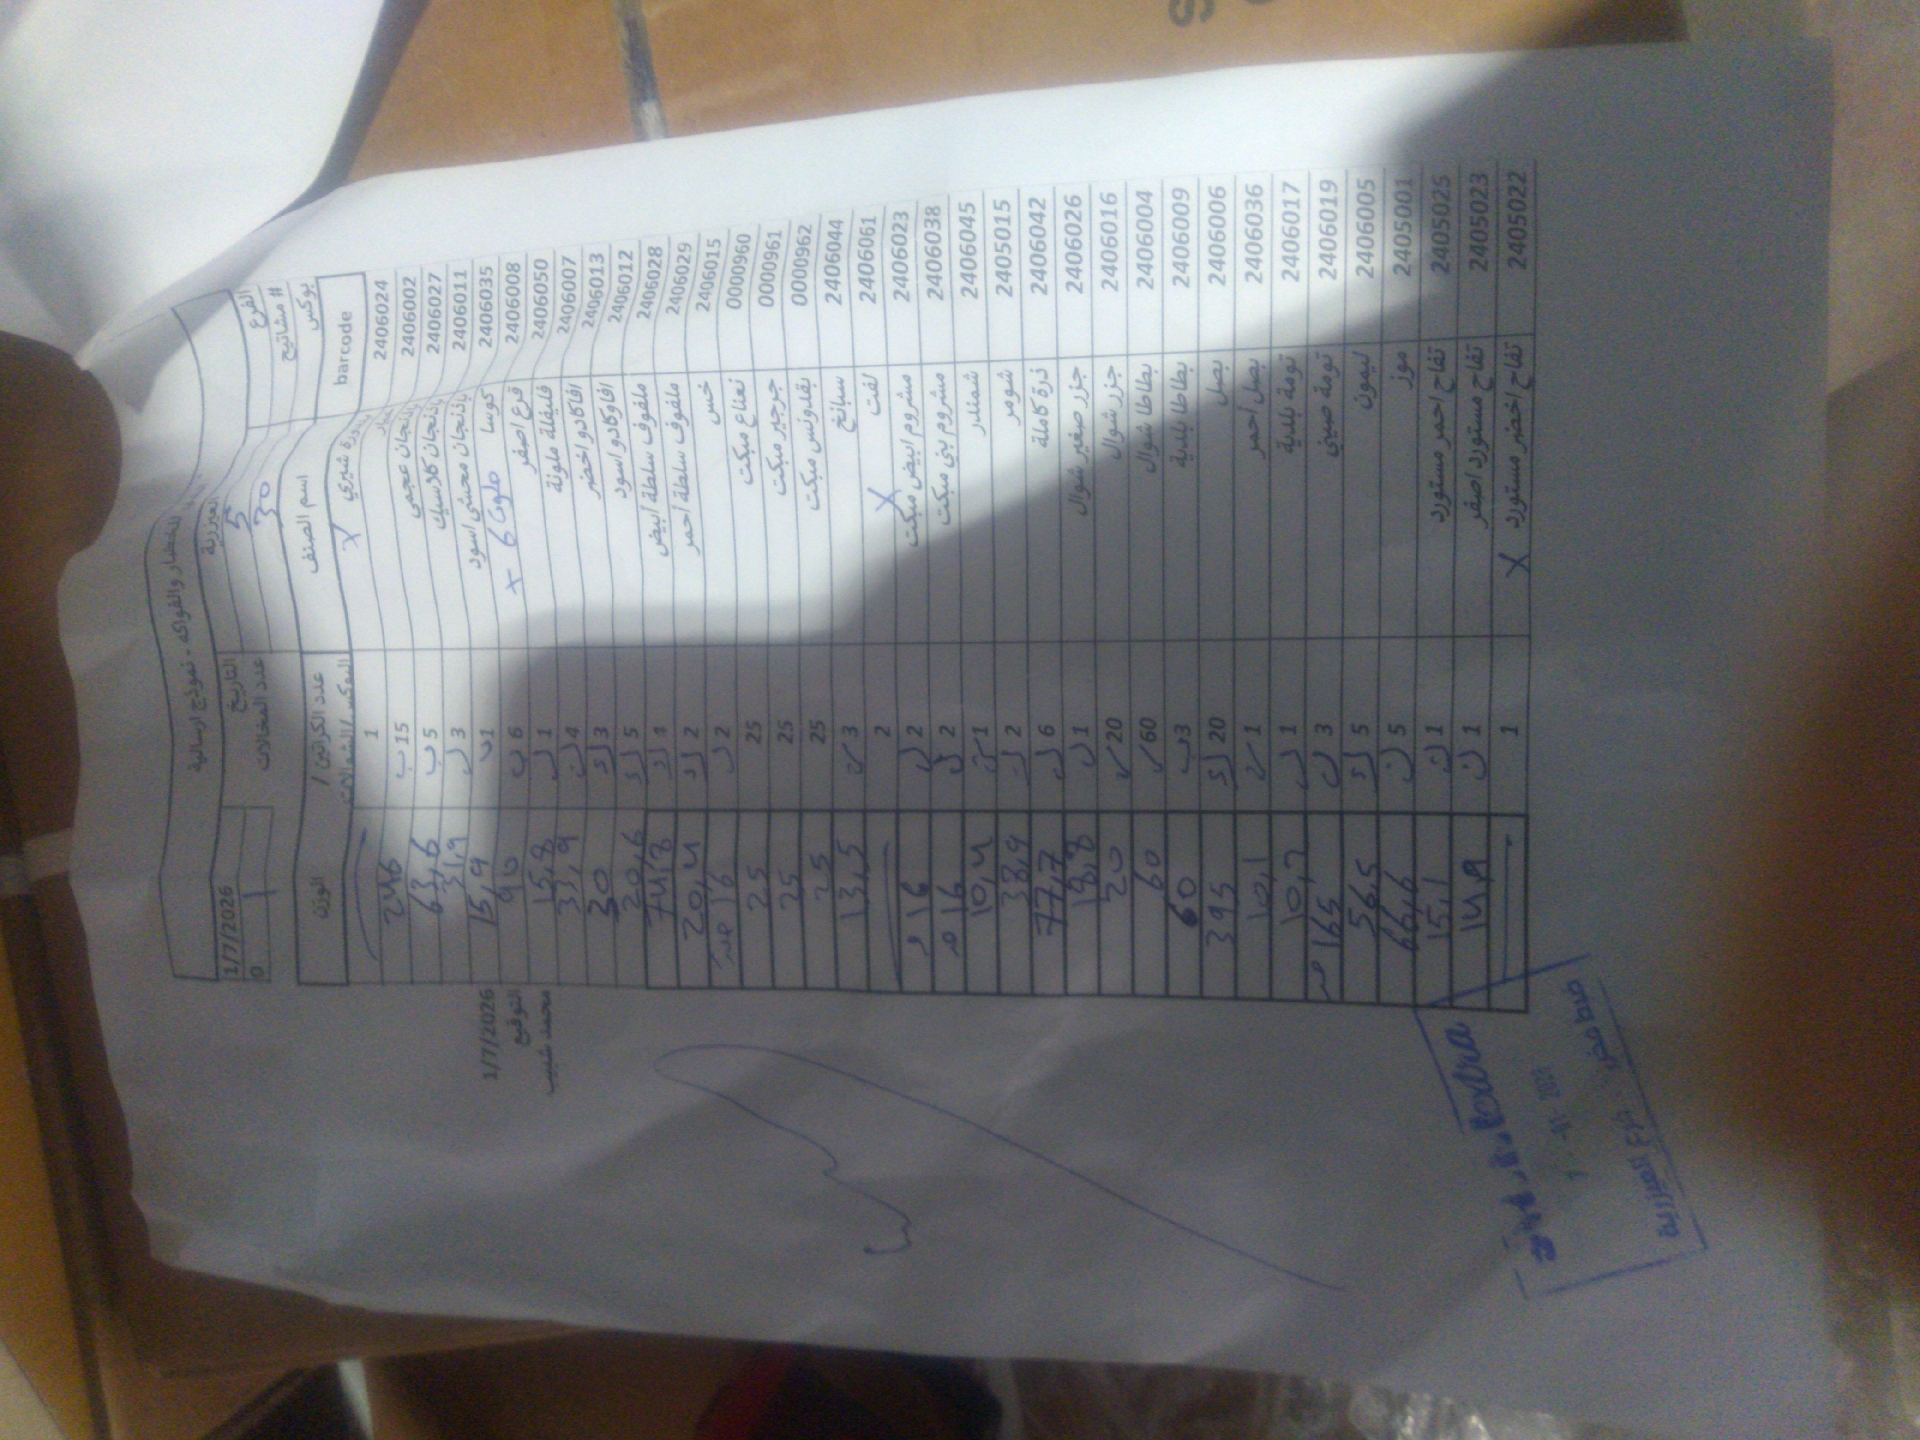 للخضار والفواكه - نموذج ارسالية
الفرع العيزرية التاريخ 1/7/2026
# مشاتيح 5 عدد المخالات 0
بوكس 30 1
barcode اسم الصنف عدد الكراتين / البوكس/الشوالات الوزن
2406024 بندورة شيري X 1
2406002 خيار 15 ب 246
2406027 باذنجان عجمي 5 ب 63,6
2406011 باذنجان كلاسيك 3 ل 31,9
2406035 باذنجان محشي اسود 1 ب 15,9
2406008 كوسا 6 ب 90
2406050 قرع اصفر 1 ل 15,8
2406007 فليفلة ملونة 4 ل 33,9
2406013 افاكادو اخضر 3 30
2406012 افوكادو اسود 5 20,6
2406028 ملفوف سلطة ابيض 4 74,8
2406029 ملفوف سلطة احمر 2 20,4
2406015 خس 2 ل 16
0000960 نعناع مبكت 25 25
0000961 جرجير مبكت 25 25
0000962 بقدونس مبكت 25 25
2406044 سبانخ 3 13,5
2406061 لفت X 2
2406023 مشروم ابيض مبكت 2 ل 16
2406038 مشروم بني مبكت 2 ل 16
2406045 شمندر 1 10,4
2405015 شومر 2 38,9
2406042 ذرة كاملة 6 ل 77,7
2406026 جزر صغير شوال 1 ل 18,8
2406016 جزر شوال 20 20
2406004 بطاطا شوال 60 60
2406009 بطاطا بلدية 3 ب 60
2406006 بصل 20 395
2406036 بصل احمر 1 10,1
2406017 تومة بلدية 1 ل 10,7
2406019 تومة صيني 3 ل 165
2406005 ليمون 5 56,5
2405001 موز 5 ل 66,6
2405025 تفاح احمر مستورد 1 ل 15,1
2405023 تفاح مستورد اصفر 1 ل 14,9
2405022 تفاح اخضر مستورد X 1
1/7/2026
التوقيع
محمد شبيب
extra
فرع العيزرية